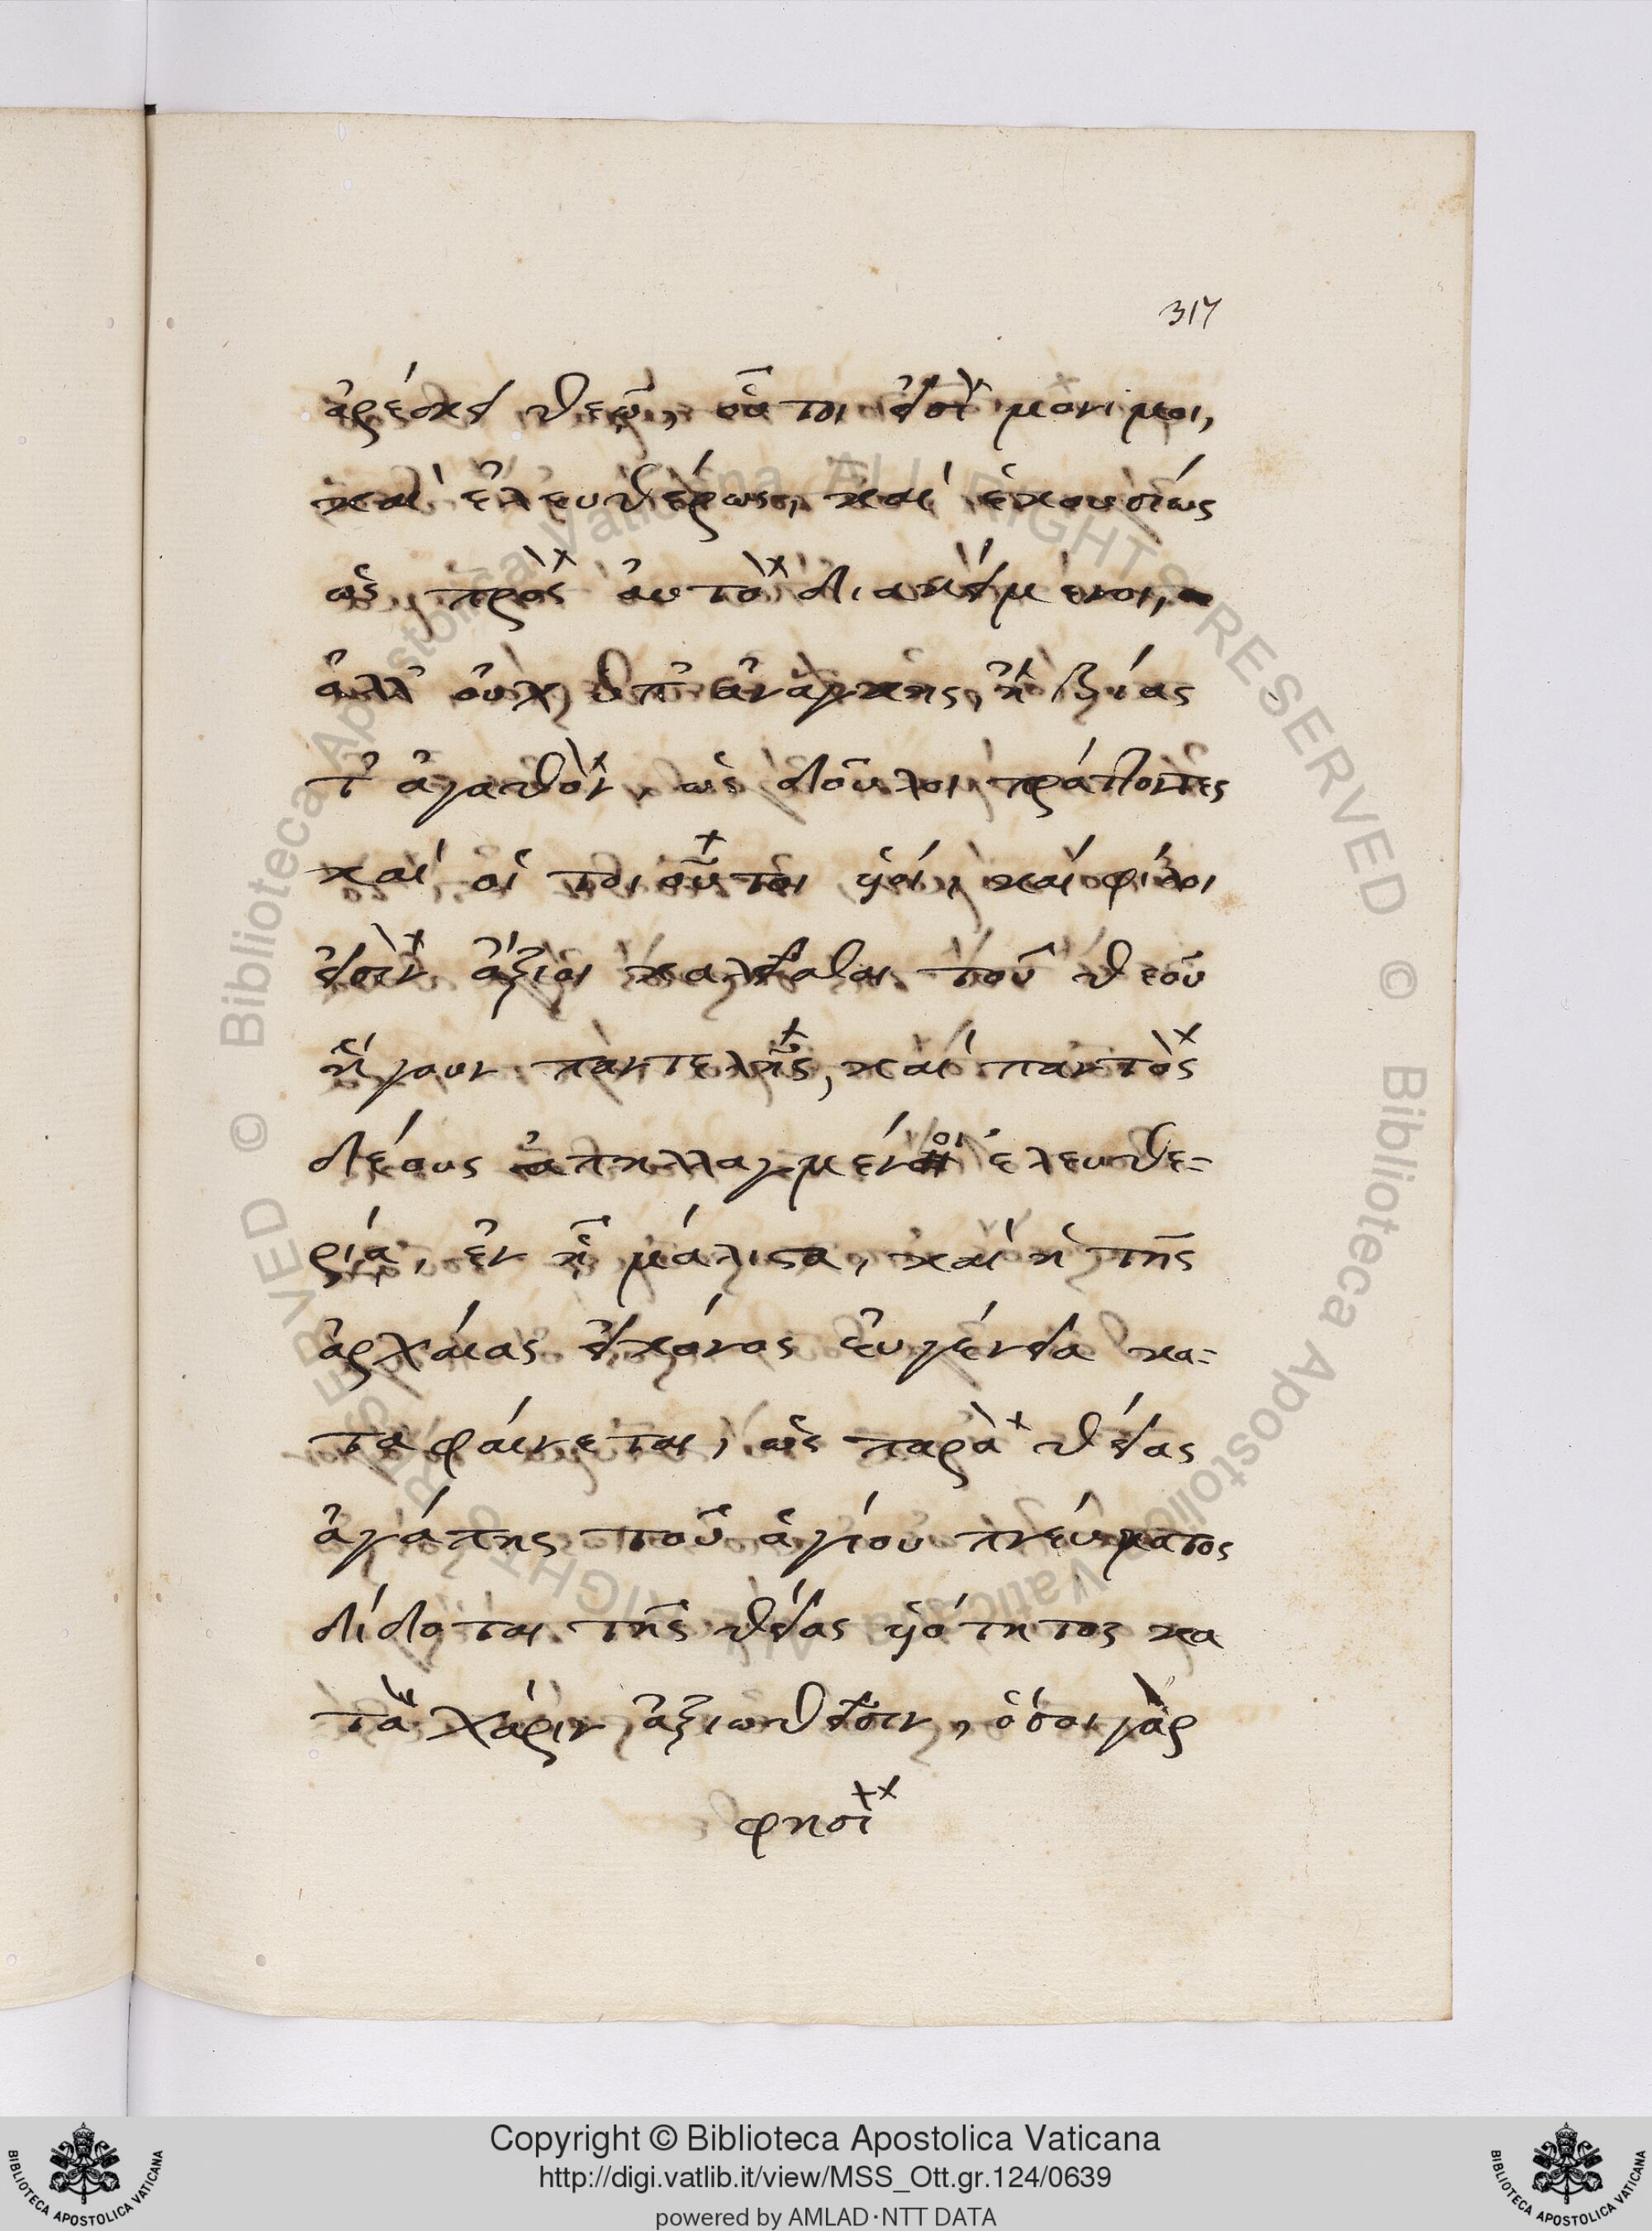 317
ἀρέσκει θεῷ, οὗτοι εἰσὶ μόνιμοι,
καὶ ἐλευθέρως, καὶ ἑκουσίως
ὡς πρὸς αὐτὸ διακείμενοι,
ἀλλ' οὐχ ὑπ' ἀνάγκης, ἢ βίας
τ' ἀγαθὸν, ὡς δοῦλοι πράττοντες
καὶ οἱ τοιοῦτοι ὑοί, καὶ φίλοι
εἰσὶν ἄξιοι καλεῖσθαι τοῦ θεοῦ
ἤγουν παντελῆς, καὶ παντὸς
δέους ἀπηλλαγμένη ἐλευθε-
ρία, ἐν ᾗ μάλιστα, καὶ ἡ τῆς
ἀρχαίας εἰκόνος εὐγένεια κα-
ταφαίνεται, ὡς παρὰ θείας
ἀγάπης τοῦ ἁγίου πνεύματος
δίδοται τῆς θείας ὑότητος κα
τὰ χάριν ἀξιωθεῖσιν, ὅσοι γὰρ
φησὶ
Copyright © Biblioteca Apostolica Vaticana
http://digi.vatlib.it/view/MSS_Ott.gr.124/0639
powered by AMLAD·NTT DATA
BIBLIOTECA APOSTOLICA VATICANA
BIBLIOTECA APOSTOLICA VATICANA
© Biblioteca Apostolica Vaticana ALL RIGHTS RESERVED
© Biblioteca Apostolica Vaticana ALL RIGHTS RESERVED